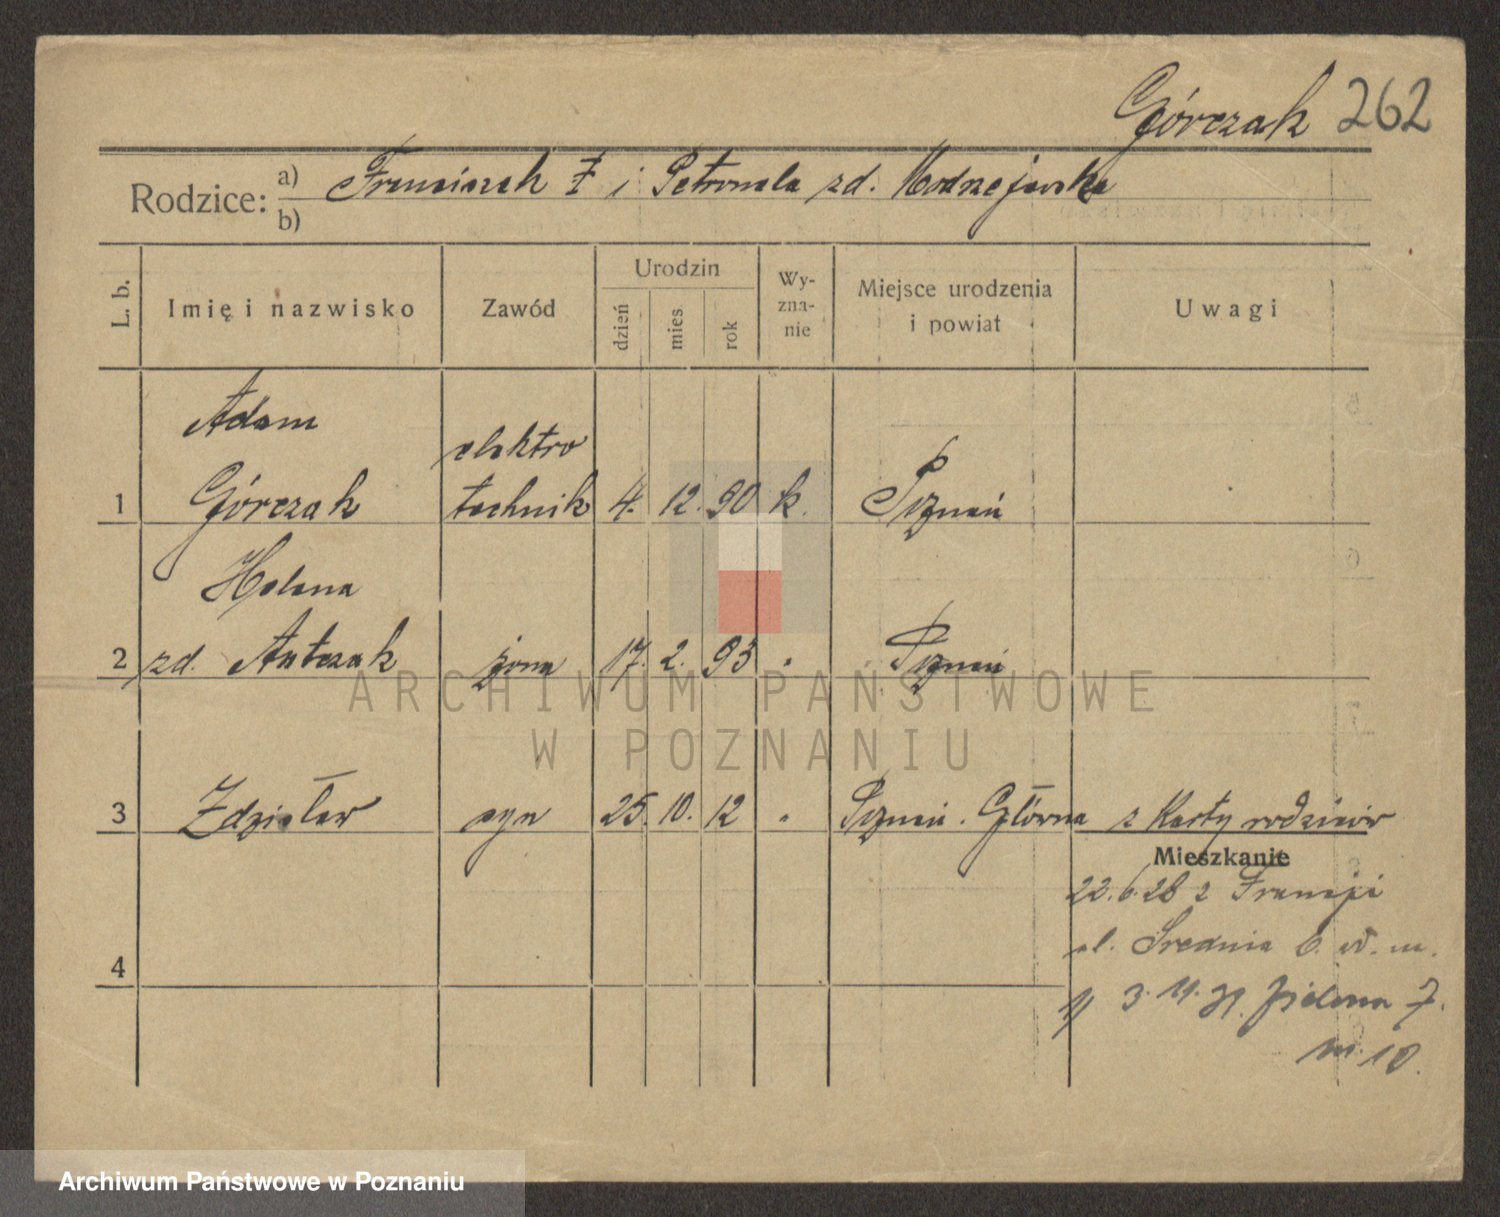 Górczak 262
Rodzice: a) Franciszek ✝ i Petronela zd. Modrzejewska
b)
L. b. Imię i nazwisko Zawód Urodzin dzień mies rok Wy-zna-nie Miejsce urodzenia i powiat Uwagi
Adam
elektro
1 Górczak technik 4. 12. 90 k. Poznań
Helena
2 zd. Antczak żona 17. 2. 93 " Poznań
3 Zdzisław syn 25. 10. 12 " Poznań. Główna z Karty rodziców
Mieszkanie
22.6.28 z Francji
ul. Średnia 6. m.
4
3. 11. Zielona 7.
m. 10.
ARCHIWUM PAŃSTWOWE
W POZNANIU
Archiwum Państwowe w Poznaniu